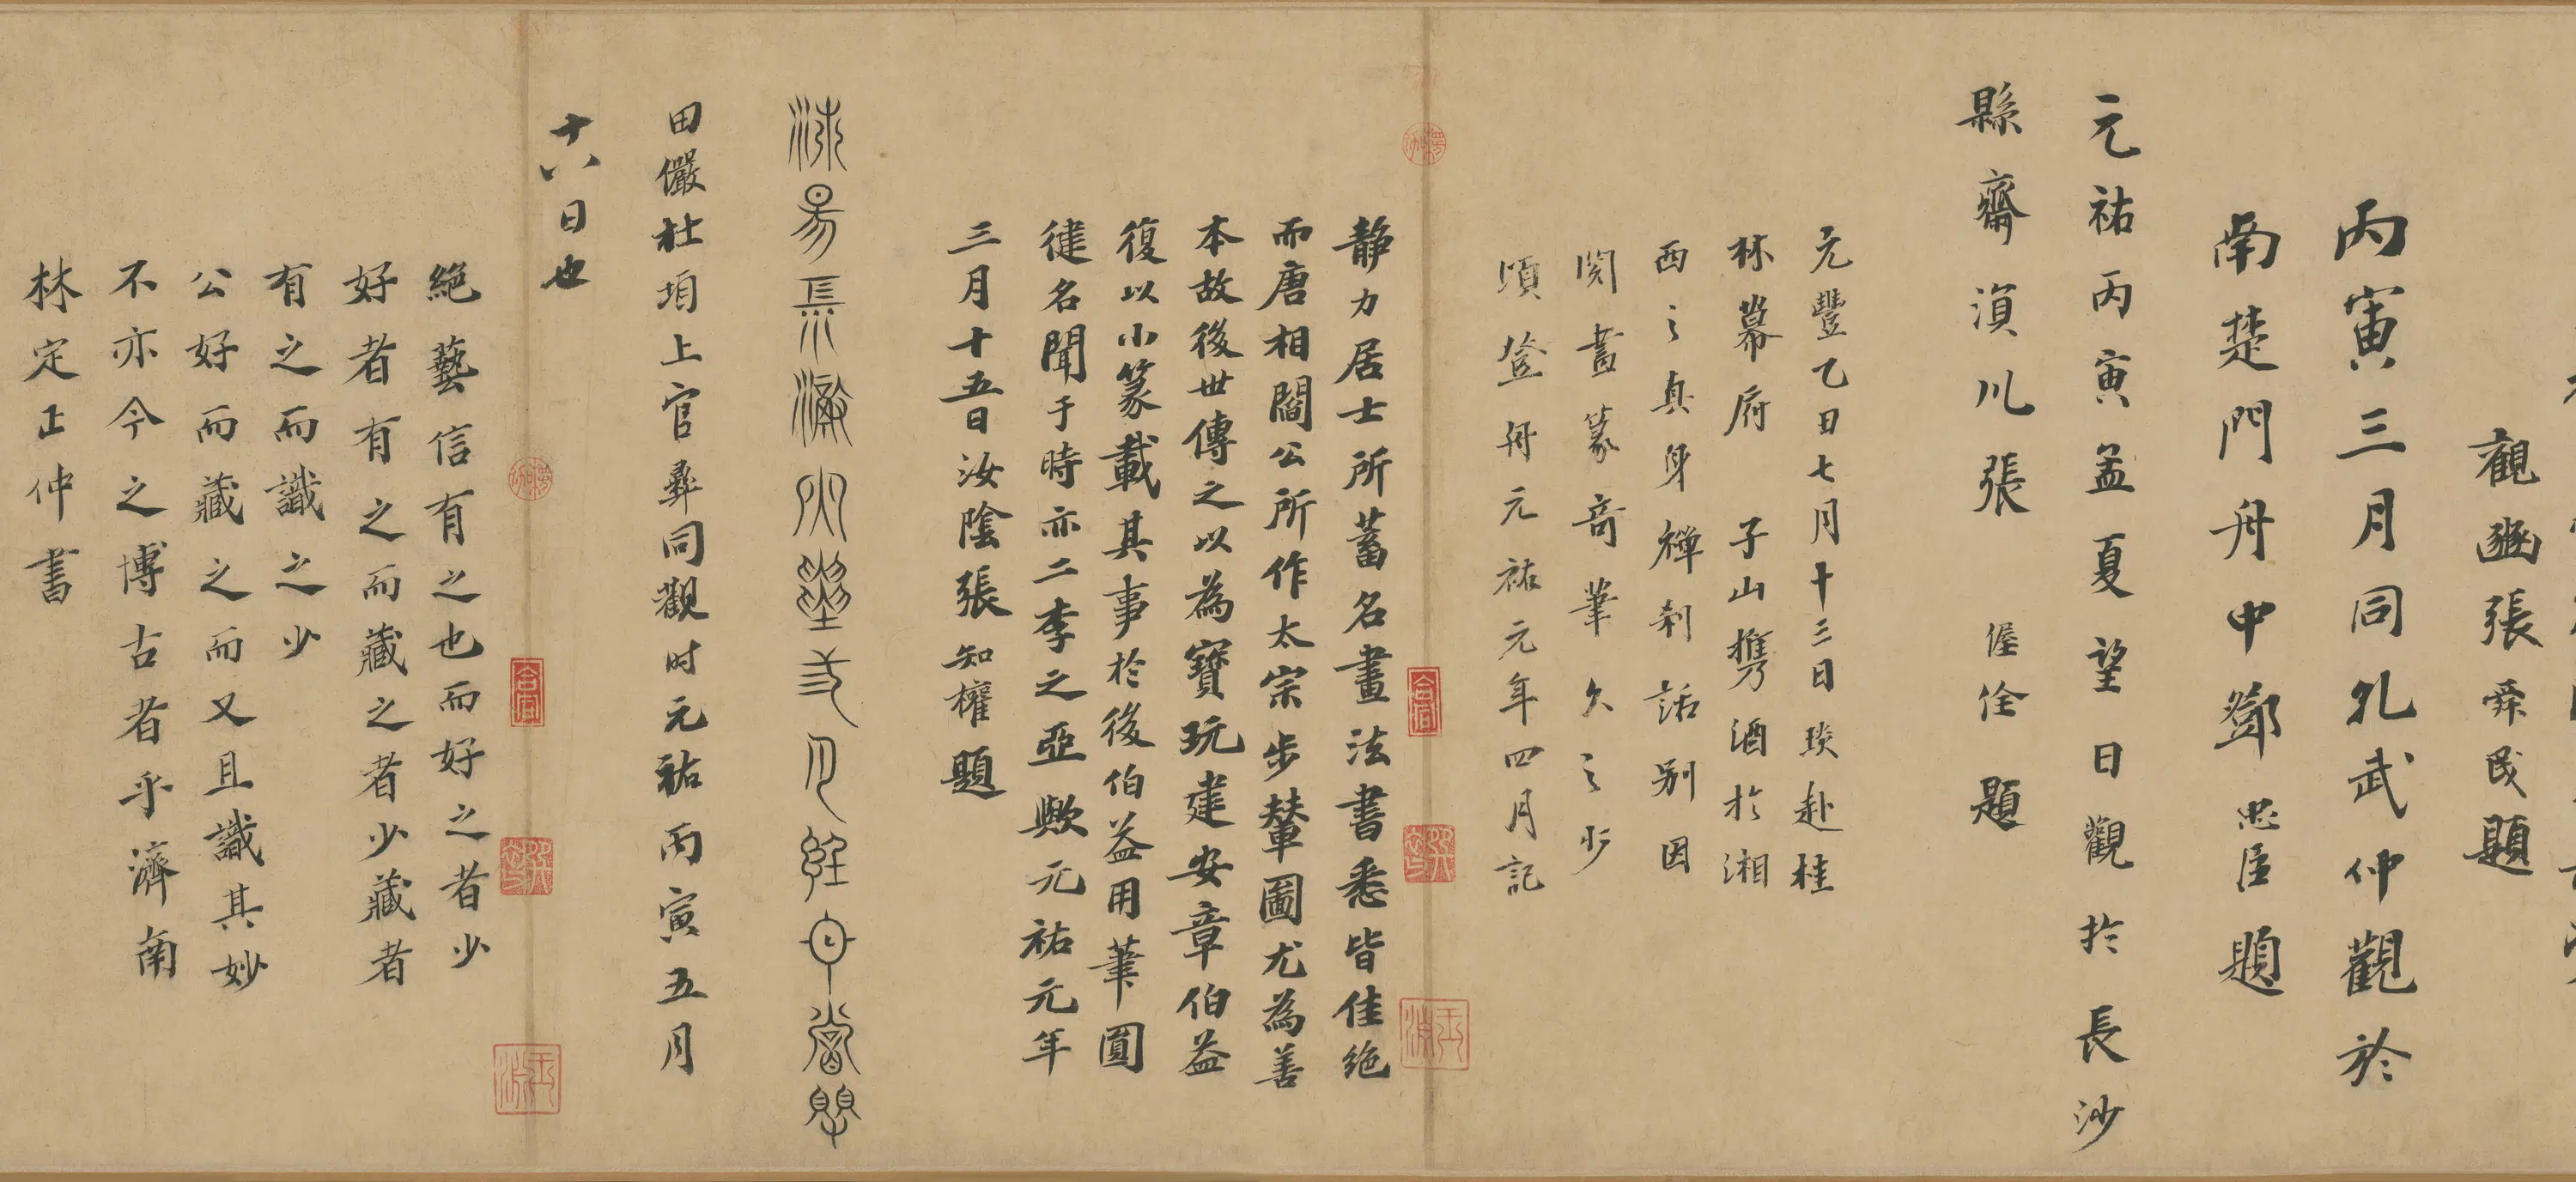 觀豳張舜民題
丙寅三月同孔武仲觀於
南楚門舟中鄧忠臣題
元祐丙寅孟夏望日觀於長沙
縣齋湞川張
偓佺題
元豐乙丑七月十三日琰赴桂
林幕府子山攜酒於湘
西之真身禪刹話別因
閱畫篆奇筆久之少
頃登舟元祐元年四月記
靜力居士所蓄名畫法書悉皆佳絕
而唐相閻公所作太宗步輦圖尤為善
本故後世傳之以為寶玩建安章伯益
復以小篆載其事於後伯益用筆圓
健名聞于時亦二李之亞歟元祐元年
三月十五日汝陰張知權題
田儼杜垍上官彝同觀时元祐丙寅五月
十八日也
絕藝信有之也而好之者少
好者有之而藏之者少藏者
有之而識之少
公好而藏之而又且識其妙
不亦今之博古者乎濟南
林定正仲書